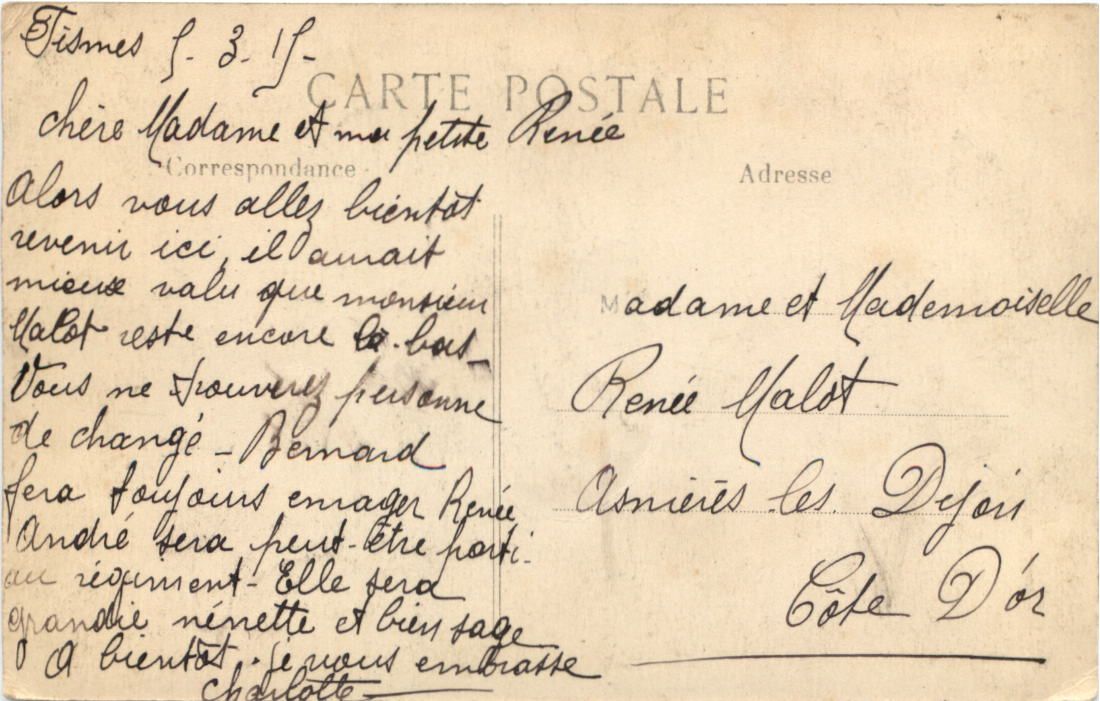 Fismes 5-3-15-
CARTE POSTALE
chère Madame et ma petite Renée
Correspondance
Alors vous allez bientôt
revenir ici, il aurait
mieux valu que monsieur
Malot reste encore là-bas-
Vous ne trouverez personne
de changé - Bernard
fera toujours enrager Renée
André sera peut-être parti-
au régiment - Elle sera
grandie nénette et bien sage
A bientôt. je vous embrasse
Charlotte
Adresse
Madame et Mademoiselle
Renée Malot
Asnières-les-Dijon
Côte D'or